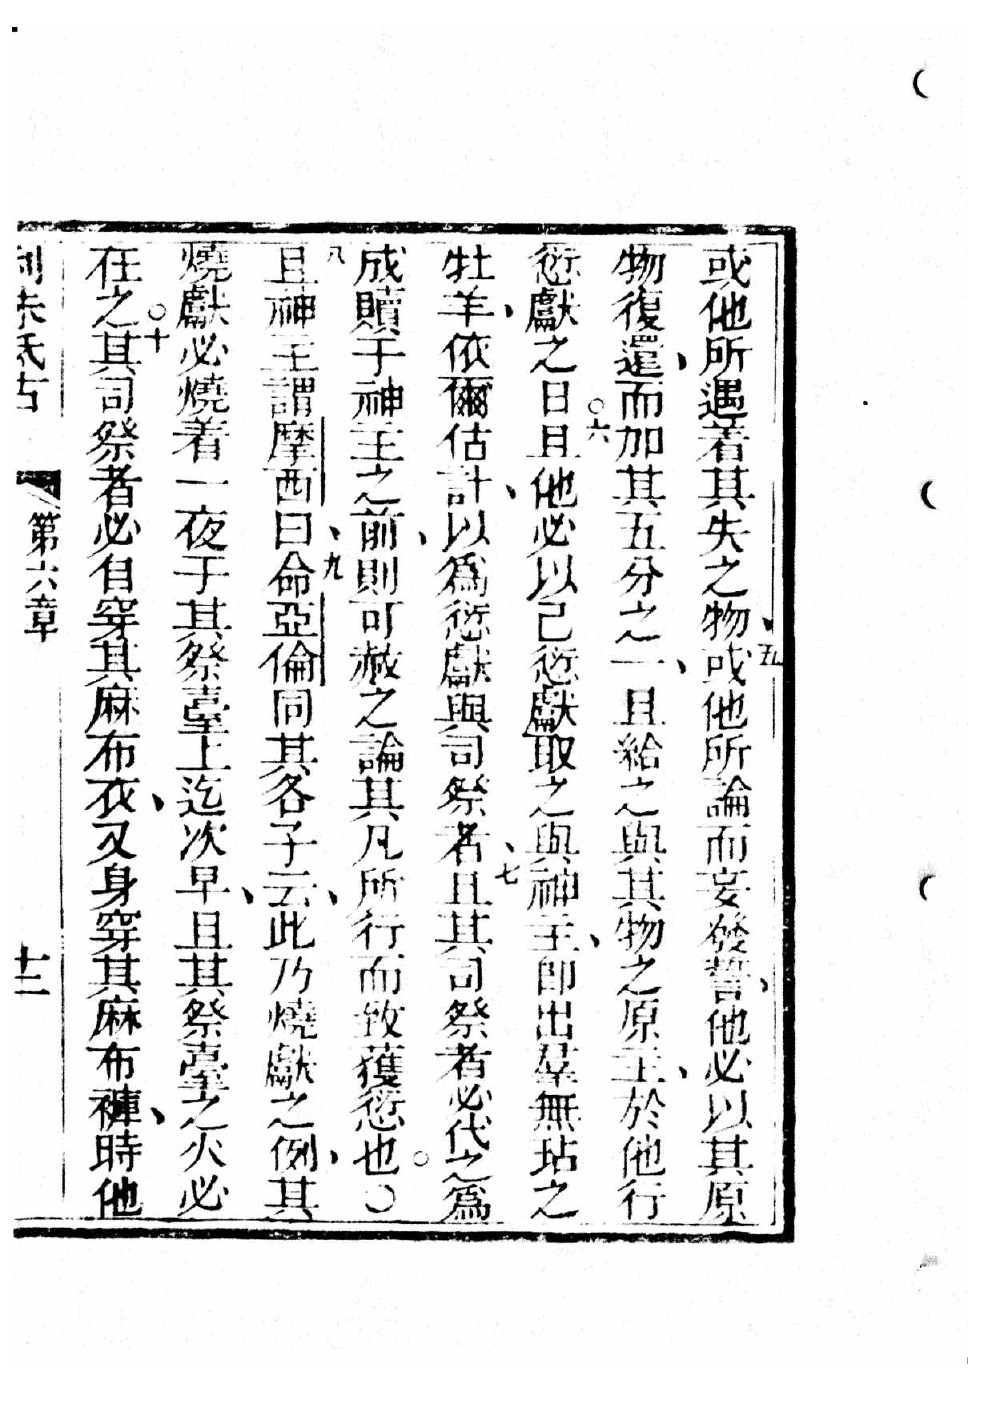 或他所遇着其失之物、五或他所論而妄發誓、他必以其原
物復還、而加其五分之一、且給之與其物之原主、於他行
愆獻之日。六且他必以己愆獻取之與神主、卽出羣無玷之
牡羊、依爾估計、以爲愆獻與司祭者、七且其司祭者必代之爲
成贖于神主之前、則可赦之論其凡所行而致獲愆也。〇
八且神主謂摩西曰、九命亞倫同其各子云、此乃燒獻之例、其
燒獻必燒着一夜于其祭臺上迄次早、且其祭臺之火必
在之。十其司祭者必自穿其麻布衣、又身穿其麻布褲、時他
利未氏古 第六章 十二